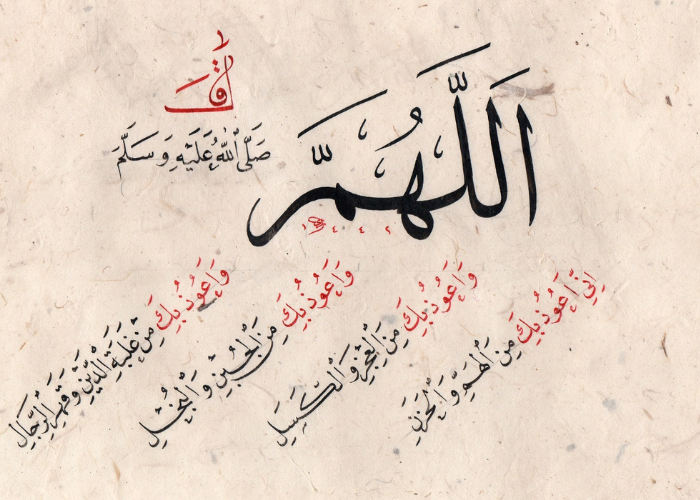 قَالَ
صَلَّى ٱللهُ عَلَيْهِ وَسَلَّمَ
اَللّٰهُمَّ
إِنِّي أَعُوذُ بِكَ مِنَ ٱلْهَمِّ وَٱلْحَزَنِ
وَأَعُوذُ بِكَ مِنَ ٱلْعَجْزِ وَٱلْكَسَلِ
وَأَعُوذُ بِكَ مِنَ ٱلْجُبْنِ وَٱلْبُخْلِ
وَأَعُوذُ بِكَ مِنْ غَلَبَةِ ٱلدَّيْنِ وَقَهْرِ ٱلرِّجَالِ